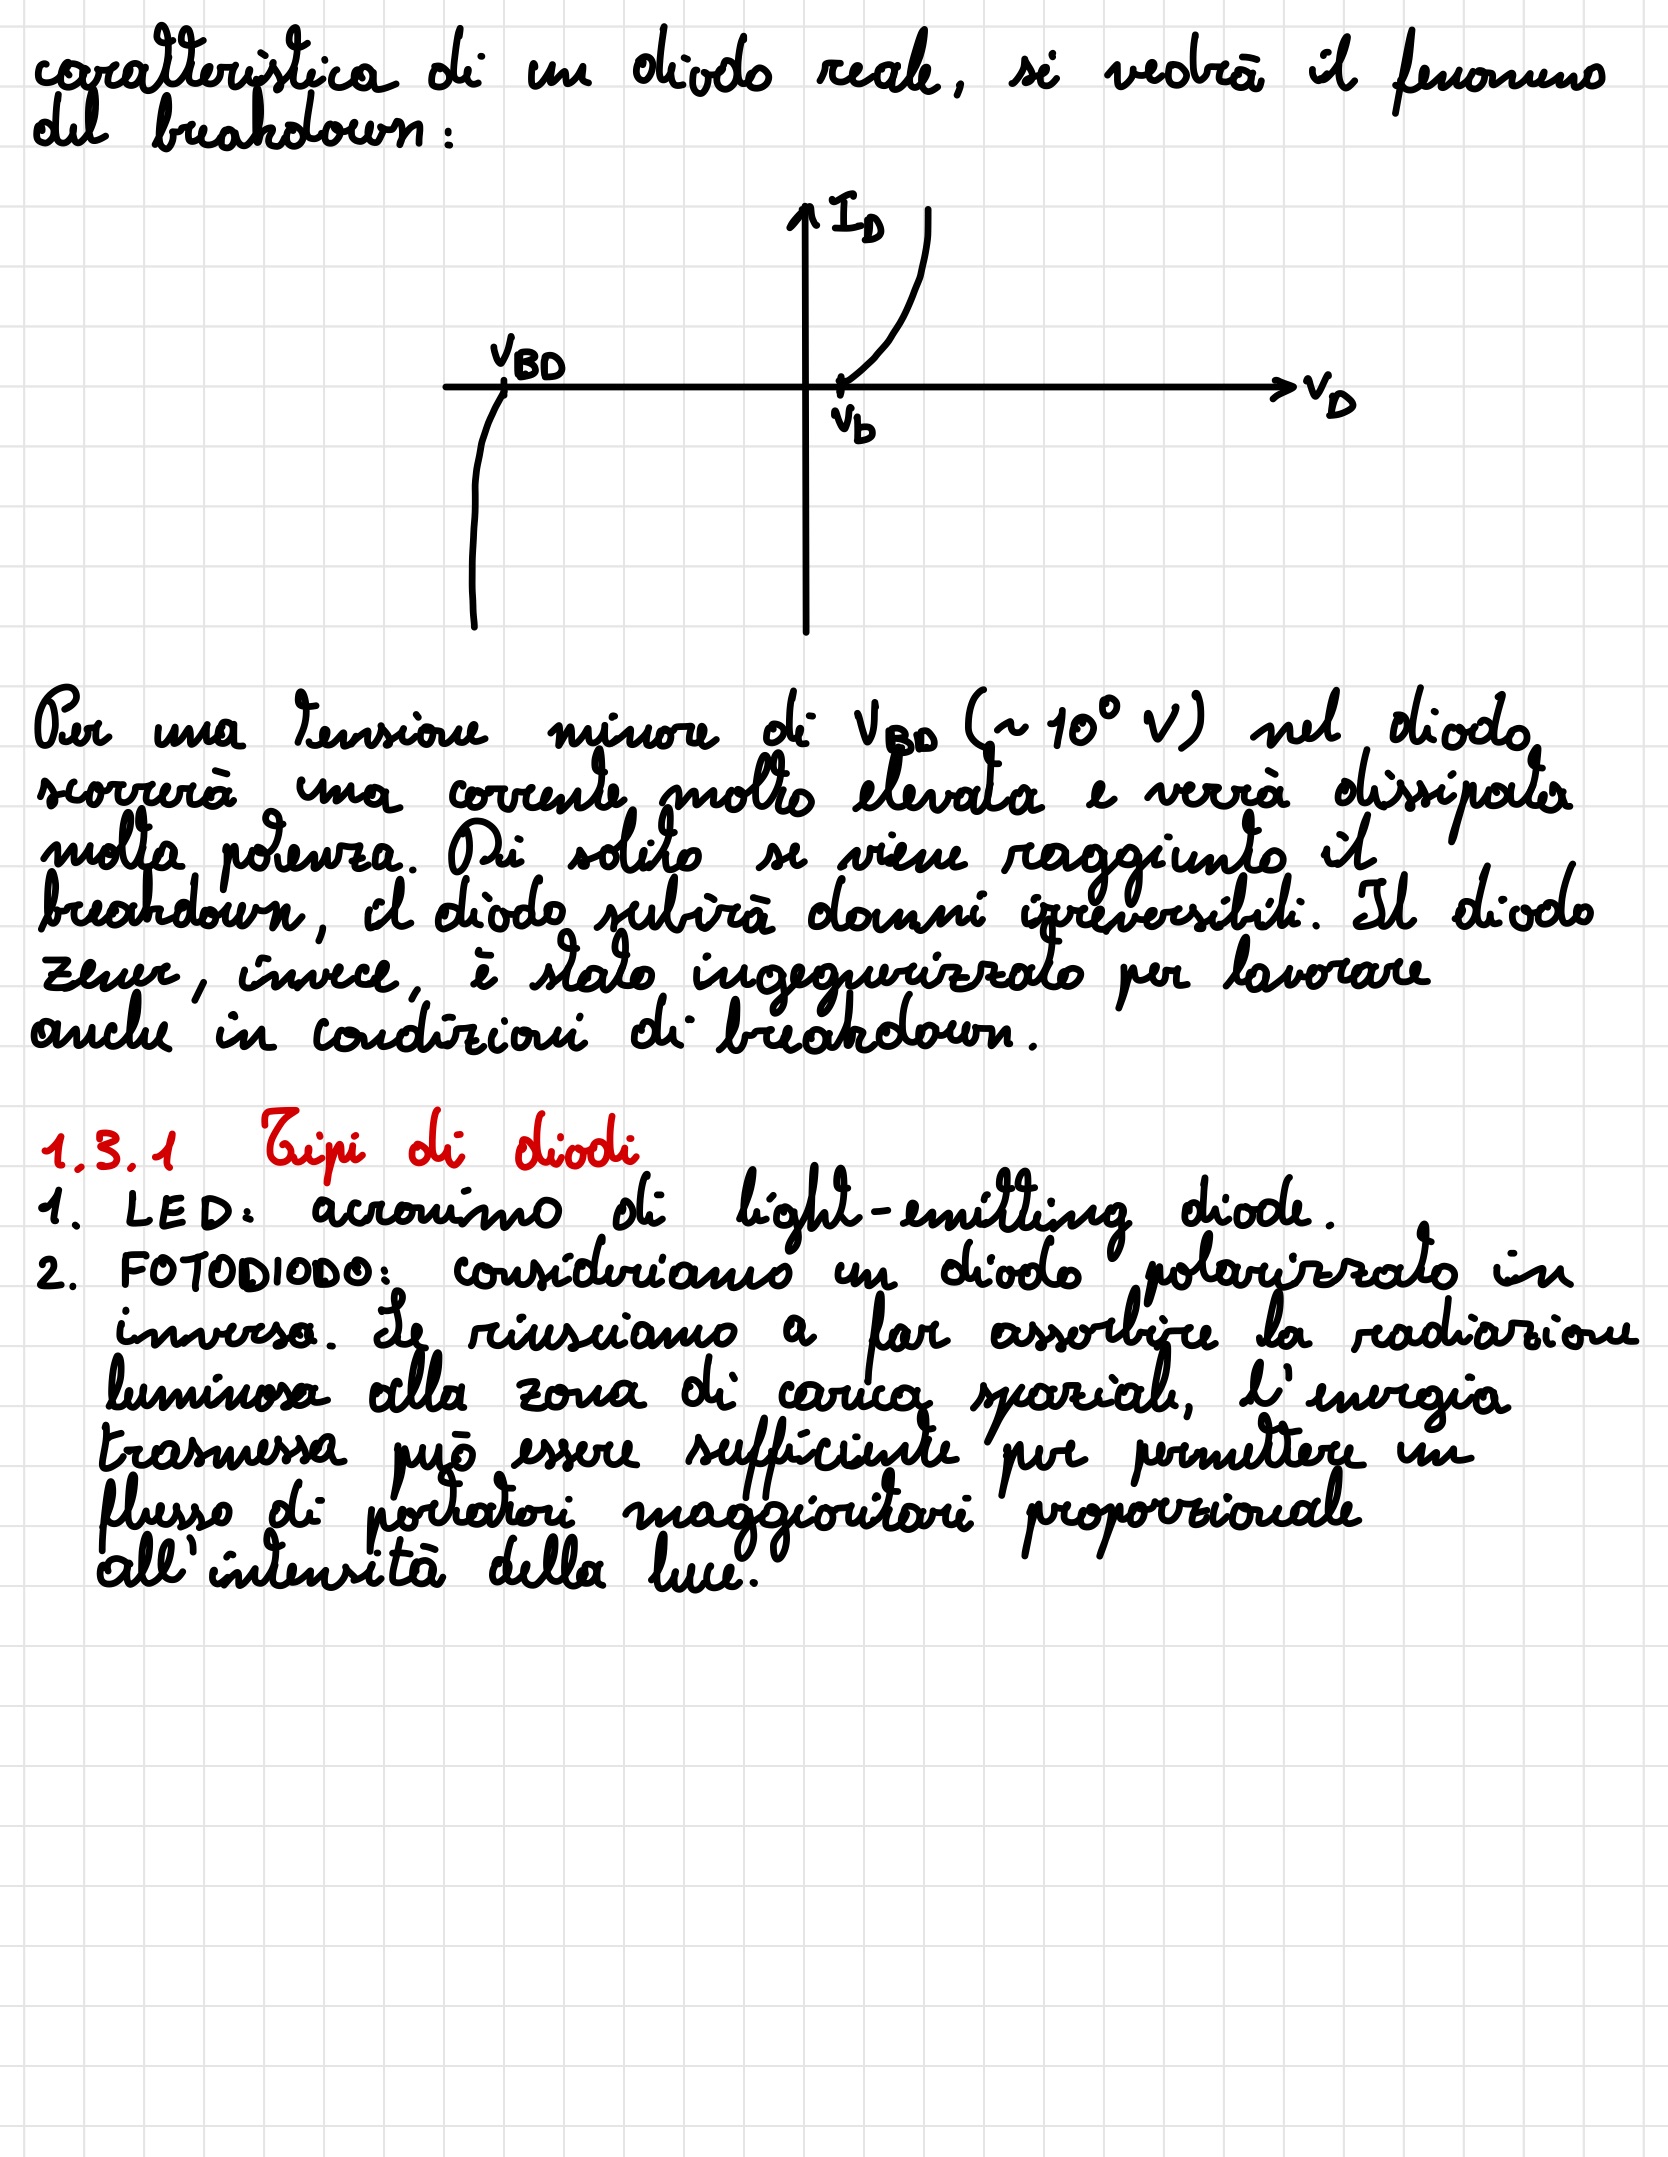 caratteristica di un diodo reale, si vedrà il fenomeno
del breakdown:
I_D
V_BD
V_D
V_b
Per una tensione minore di V_BD (~ 10⁰ V) nel diodo
scorrerà una corrente molto elevata e verrà dissipata
molta potenza. Di solito se viene raggiunto il
breakdown, il diodo subirà danni irreversibili. Il diodo
zener, invece, è stato ingegnerizzato per lavorare
anche in condizioni di breakdown.
1.3.1 Tipi di diodi
1. LED: acronimo di light-emitting diode.
2. FOTODIODO: consideriamo un diodo polarizzato in
inversa. Se riusciamo a far assorbire la radiazione
luminosa alla zona di carica spaziale, l'energia
trasmessa può essere sufficiente per permettere un
flusso di portatori maggioritari proporzionale
all'intensità della luce.